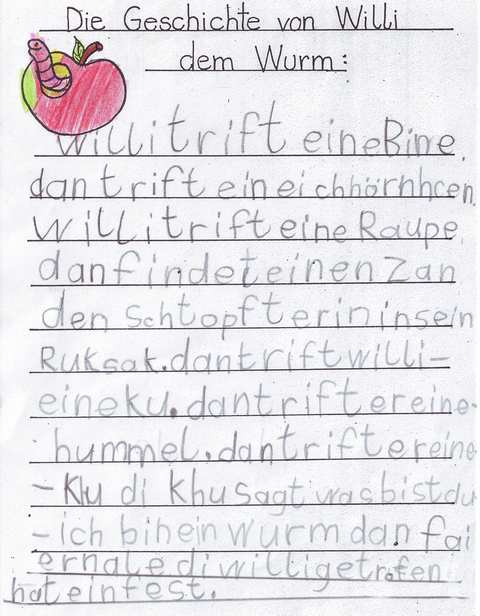 Die Geschichte von Willi
dem Wurm:
Willi trift eine Bine.
dan trift ein eichhörnhcen.
Willi trift eine Raupe.
dan findet einen Zan
den Schtopft er in insein
Ruksak. dan trift willi-
eine ku. dan trift er eine-
hummel. dan trift er eine
- Klu di khu sagt was bist du
- ich bin ein wurm dan fai
ern ale di willi getrofen
hat ein fest.